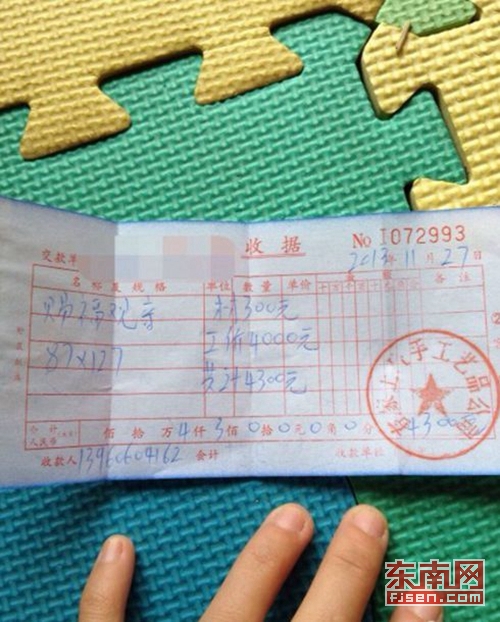 收据 No I072993
交款单 2013年11月27日
名称及规格 单位 数量 单价 金额 备注
赐福观音 材300元
87×127 工价4000元
共计4300元
合计人民币(大写) 佰拾万4仟3佰0拾0元0角0分 4300
收款人13960604162 会计 收款单位
手工艺品公司
东南网
fjsen.com